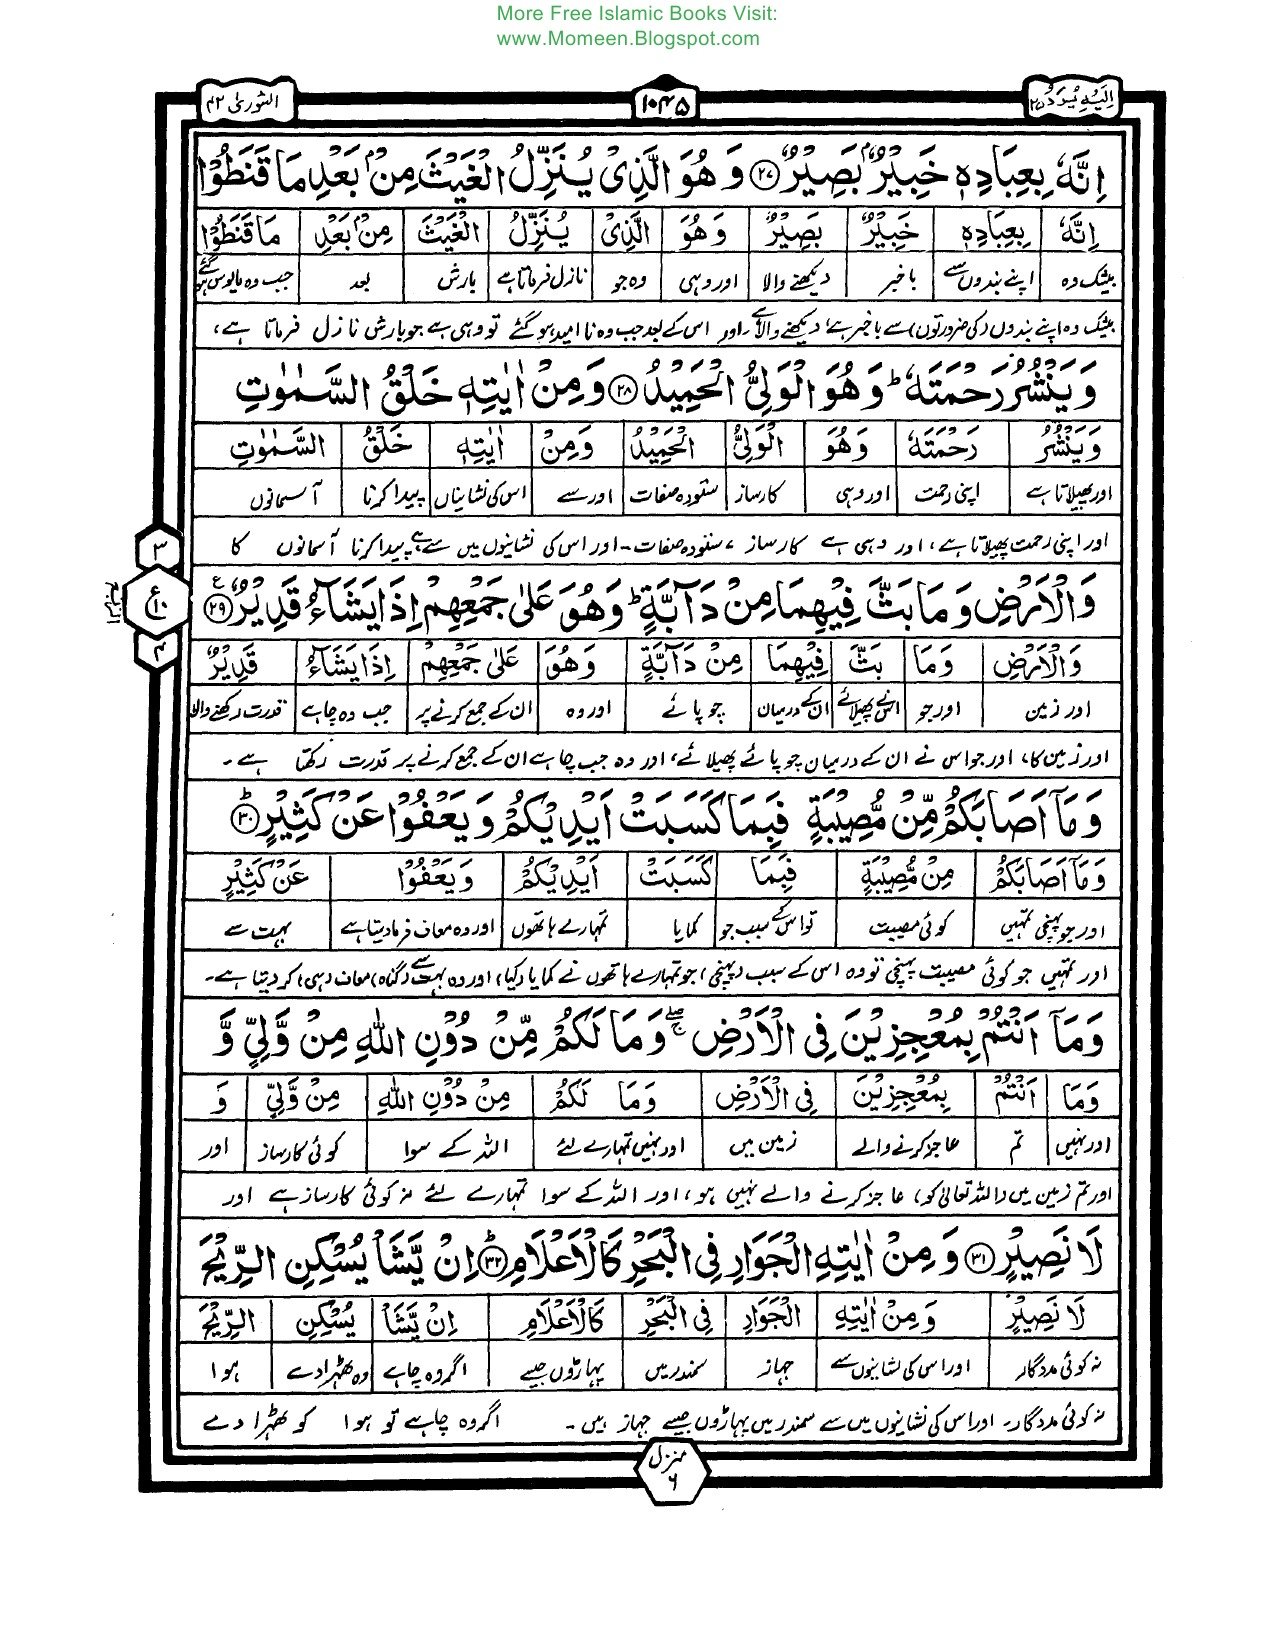 More Free Islamic Books Visit:
www.Momeen.Blogspot.com
اِلَيْهِ يُرَدُّ ۲۵
۱۰۴۵
الشورىٰ ۴۲
اِنَّهٗ بِعِبَادِهٖ خَبِيْرٌۢ بَصِيْرٌ ۲۷ وَ هُوَ الَّذِىْ يُنَزِّلُ الْغَيْثَ مِنْۢ بَعْدِ مَا قَنَطُوْا
اِنَّهٗ بِعِبَادِهٖ خَبِيْرٌۢ بَصِيْرٌ وَ هُوَ الَّذِىْ يُنَزِّلُ الْغَيْثَ مِنْۢ بَعْدِ مَا قَنَطُوْا
بیشک وہ اپنے بندوں سے باخبر دیکھنے والا اور وہی وہ جو نازل فرماتا ہے بارش بعد جب وہ مایوس ہو گئے
بیشک وہ اپنے بندوں (کی ضرورتوں) سے باخبر ہے، دیکھنے والا ہے۔ اور اس کے بعد جب وہ نا امید ہو گئے تو وہی ہے جو بارش نازل فرماتا ہے،
وَ يَنْشُرُ رَحْمَتَهٗ ؕ وَ هُوَ الْوَلِىُّ الْحَمِيْدُ ۲۸ وَ مِنْ اٰيٰتِهٖ خَلْقُ السَّمٰوٰتِ
وَ يَنْشُرُ رَحْمَتَهٗ وَ هُوَ الْوَلِىُّ الْحَمِيْدُ وَ مِنْ اٰيٰتِهٖ خَلْقُ السَّمٰوٰتِ
اور پھیلاتا ہے اپنی رحمت اور وہی کارساز ستودہ صفات اور سے اس کی نشانیاں پیدا کرنا آسمانوں
اور اپنی رحمت پھیلاتا ہے، اور وہی ہے کارساز، ستودہ صفات۔ اور اس کی نشانیوں میں سے ہے پیدا کرنا آسمانوں کا
وَ الْاَرْضِ وَ مَا بَثَّ فِيْهِمَا مِنْ دَآبَّةٍ ؕ وَ هُوَ عَلٰى جَمْعِهِمْ اِذَا يَشَآءُ قَدِيْرٌ ۲۹
۳
ع ۱۰
۴
الربع
وَ الْاَرْضِ وَ مَا بَثَّ فِيْهِمَا مِنْ دَآبَّةٍ وَ هُوَ عَلٰى جَمْعِهِمْ اِذَا يَشَآءُ قَدِيْرٌ
اور زمین اور جو اس نے پھیلائے ان کے درمیان چوپائے اور وہ ان کے جمع کرنے پر جب وہ چاہے قدرت رکھنے والا
اور زمین کا، اور جو اس نے ان کے درمیان چوپائے پھیلائے، اور وہ جب چاہے ان کے جمع کرنے پر قدرت رکھتا ہے۔
وَ مَاۤ اَصَابَكُمْ مِّنْ مُّصِيْبَةٍ فَبِمَا كَسَبَتْ اَيْدِيْكُمْ وَ يَعْفُوْا عَنْ كَثِيْرٍ ؕ ۳۰
وَ مَاۤ اَصَابَكُمْ مِنْ مُّصِيْبَةٍ فَبِمَا كَسَبَتْ اَيْدِيْكُمْ وَ يَعْفُوْا عَنْ كَثِيْرٍ
اور جو پہنچی تمہیں کوئی مصیبت تو اس کے سبب جو کمایا تمہارے ہاتھوں اور وہ معاف فرمادیتا ہے بہت سے
اور تمہیں جو کوئی مصیبت پہنچی تو وہ اس کے سبب (پہنچی) جو تمہارے ہاتھوں نے کمایا (کیا) اور وہ بہت سے (گناہ) معاف (ہی) کر دیتا ہے۔
وَ مَاۤ اَنْتُمْ بِمُعْجِزِيْنَ فِى الْاَرْضِ ۖۚ وَ مَا لَكُمْ مِّنْ دُوْنِ اللّٰهِ مِنْ وَّلِىٍّ وَّ
وَ مَاۤ اَنْتُمْ بِمُعْجِزِيْنَ فِى الْاَرْضِ وَ مَا لَكُمْ مِنْ دُوْنِ اللّٰهِ مِنْ وَّلِىٍّ وَّ
اور نہیں تم عاجز کرنے والے زمین میں اور نہیں تمہارے لئے اللہ کے سوا کوئی کارساز اور
اور تم زمین میں (اللہ تعالیٰ کو) عاجز کرنے والے نہیں ہو، اور اللہ کے سوا تمہارے لئے نہ کوئی کارساز ہے اور
لَا نَصِيْرٍ ۳۱ وَ مِنْ اٰيٰتِهِ الْجَوَارِ فِى الْبَحْرِ كَالْاَعْلَامِ ؕ ۳۲ اِنْ يَّشَاْ يُسْكِنِ الرِّيْحَ
لَا نَصِيْرٍ وَ مِنْ اٰيٰتِهِ الْجَوَارِ فِى الْبَحْرِ كَالْاَعْلَامِ اِنْ يَّشَاْ يُسْكِنِ الرِّيْحَ
نہ کوئی مددگار اور اس کی نشانیوں سے جہاز سمندر میں پہاڑوں جیسے اگر وہ چاہے وہ ٹھہرادے ہوا
نہ کوئی مددگار۔ اور اس کی نشانیوں میں سے سمندر میں پہاڑوں جیسے جہاز ہیں۔ اگر وہ چاہے تو ہوا کو ٹھہرا دے
منزل ۶